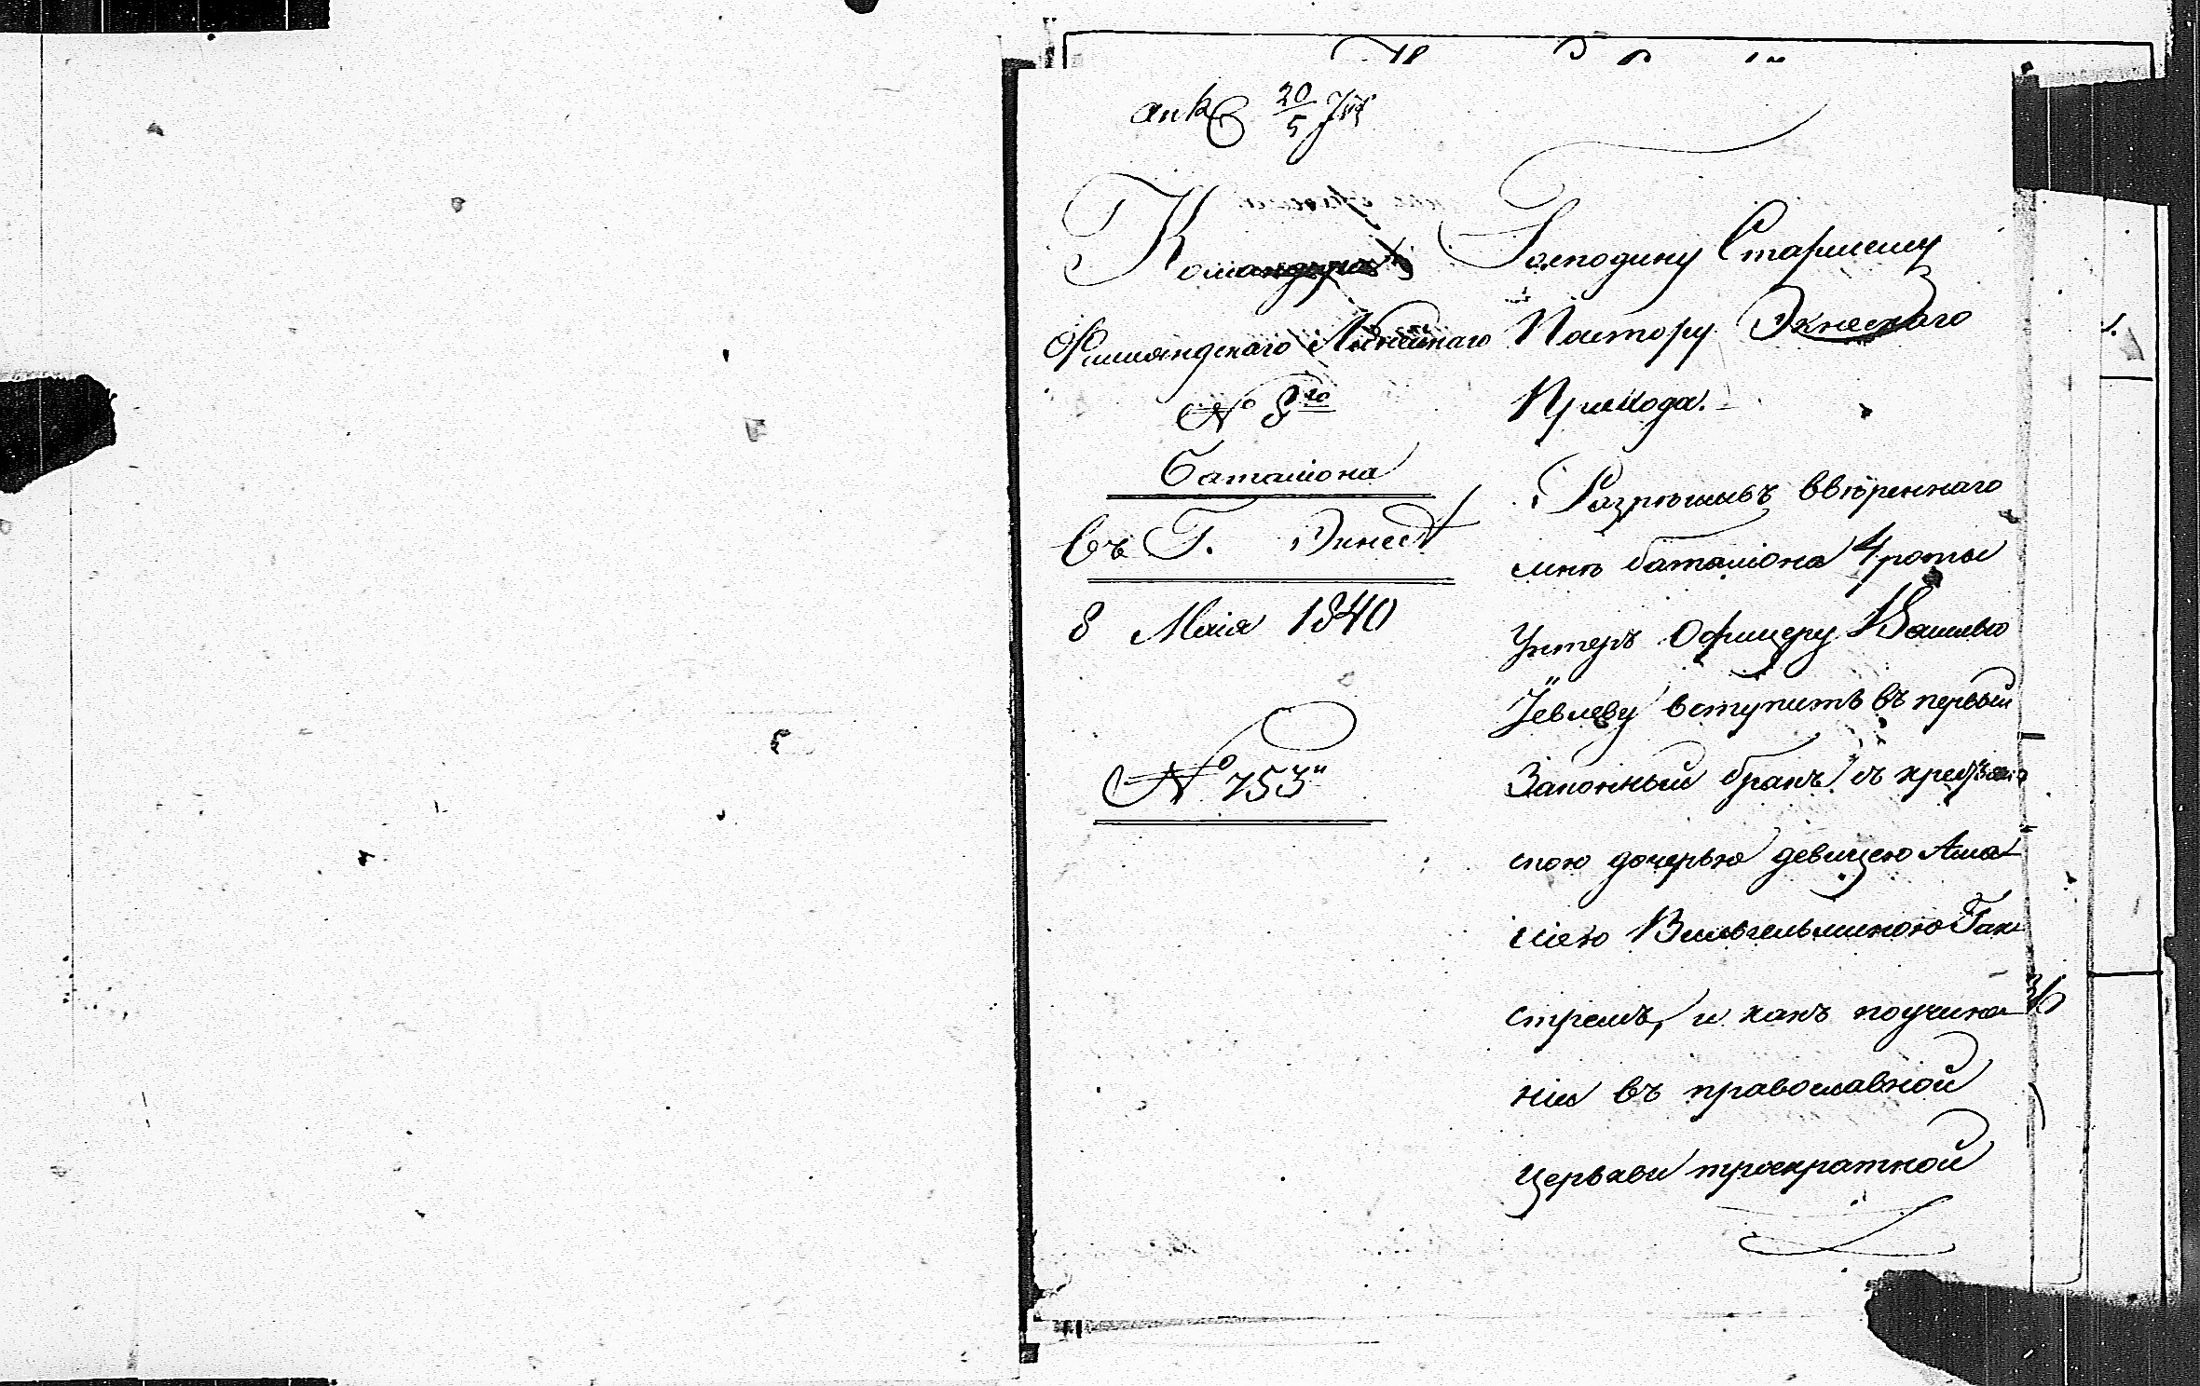 ank 20/5
Командира
Финляндскаго Линейнаго
№ 8го
баталiона
Въ Г. Экнес
8 Маiя 1840
№ 753
Господину Старшему
Пастору Экнескаго
Прихода.
Разрешивъ ввѣреннаго
мнѣ баталiона 4 роты
Унтеръ Офицеру Василью
Iевлеву вступить въ первый
Законный бракъ съ крестьян
скою дочерью девицею Ама
лiею Вильгельминою Гак
стремъ, и какъ поучина
нiи въ православной
церькви троекратной